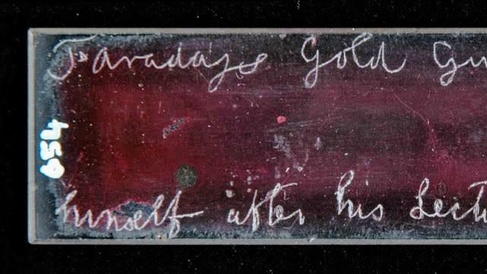 Faradays Gold Gi
himself after his Lectu
654